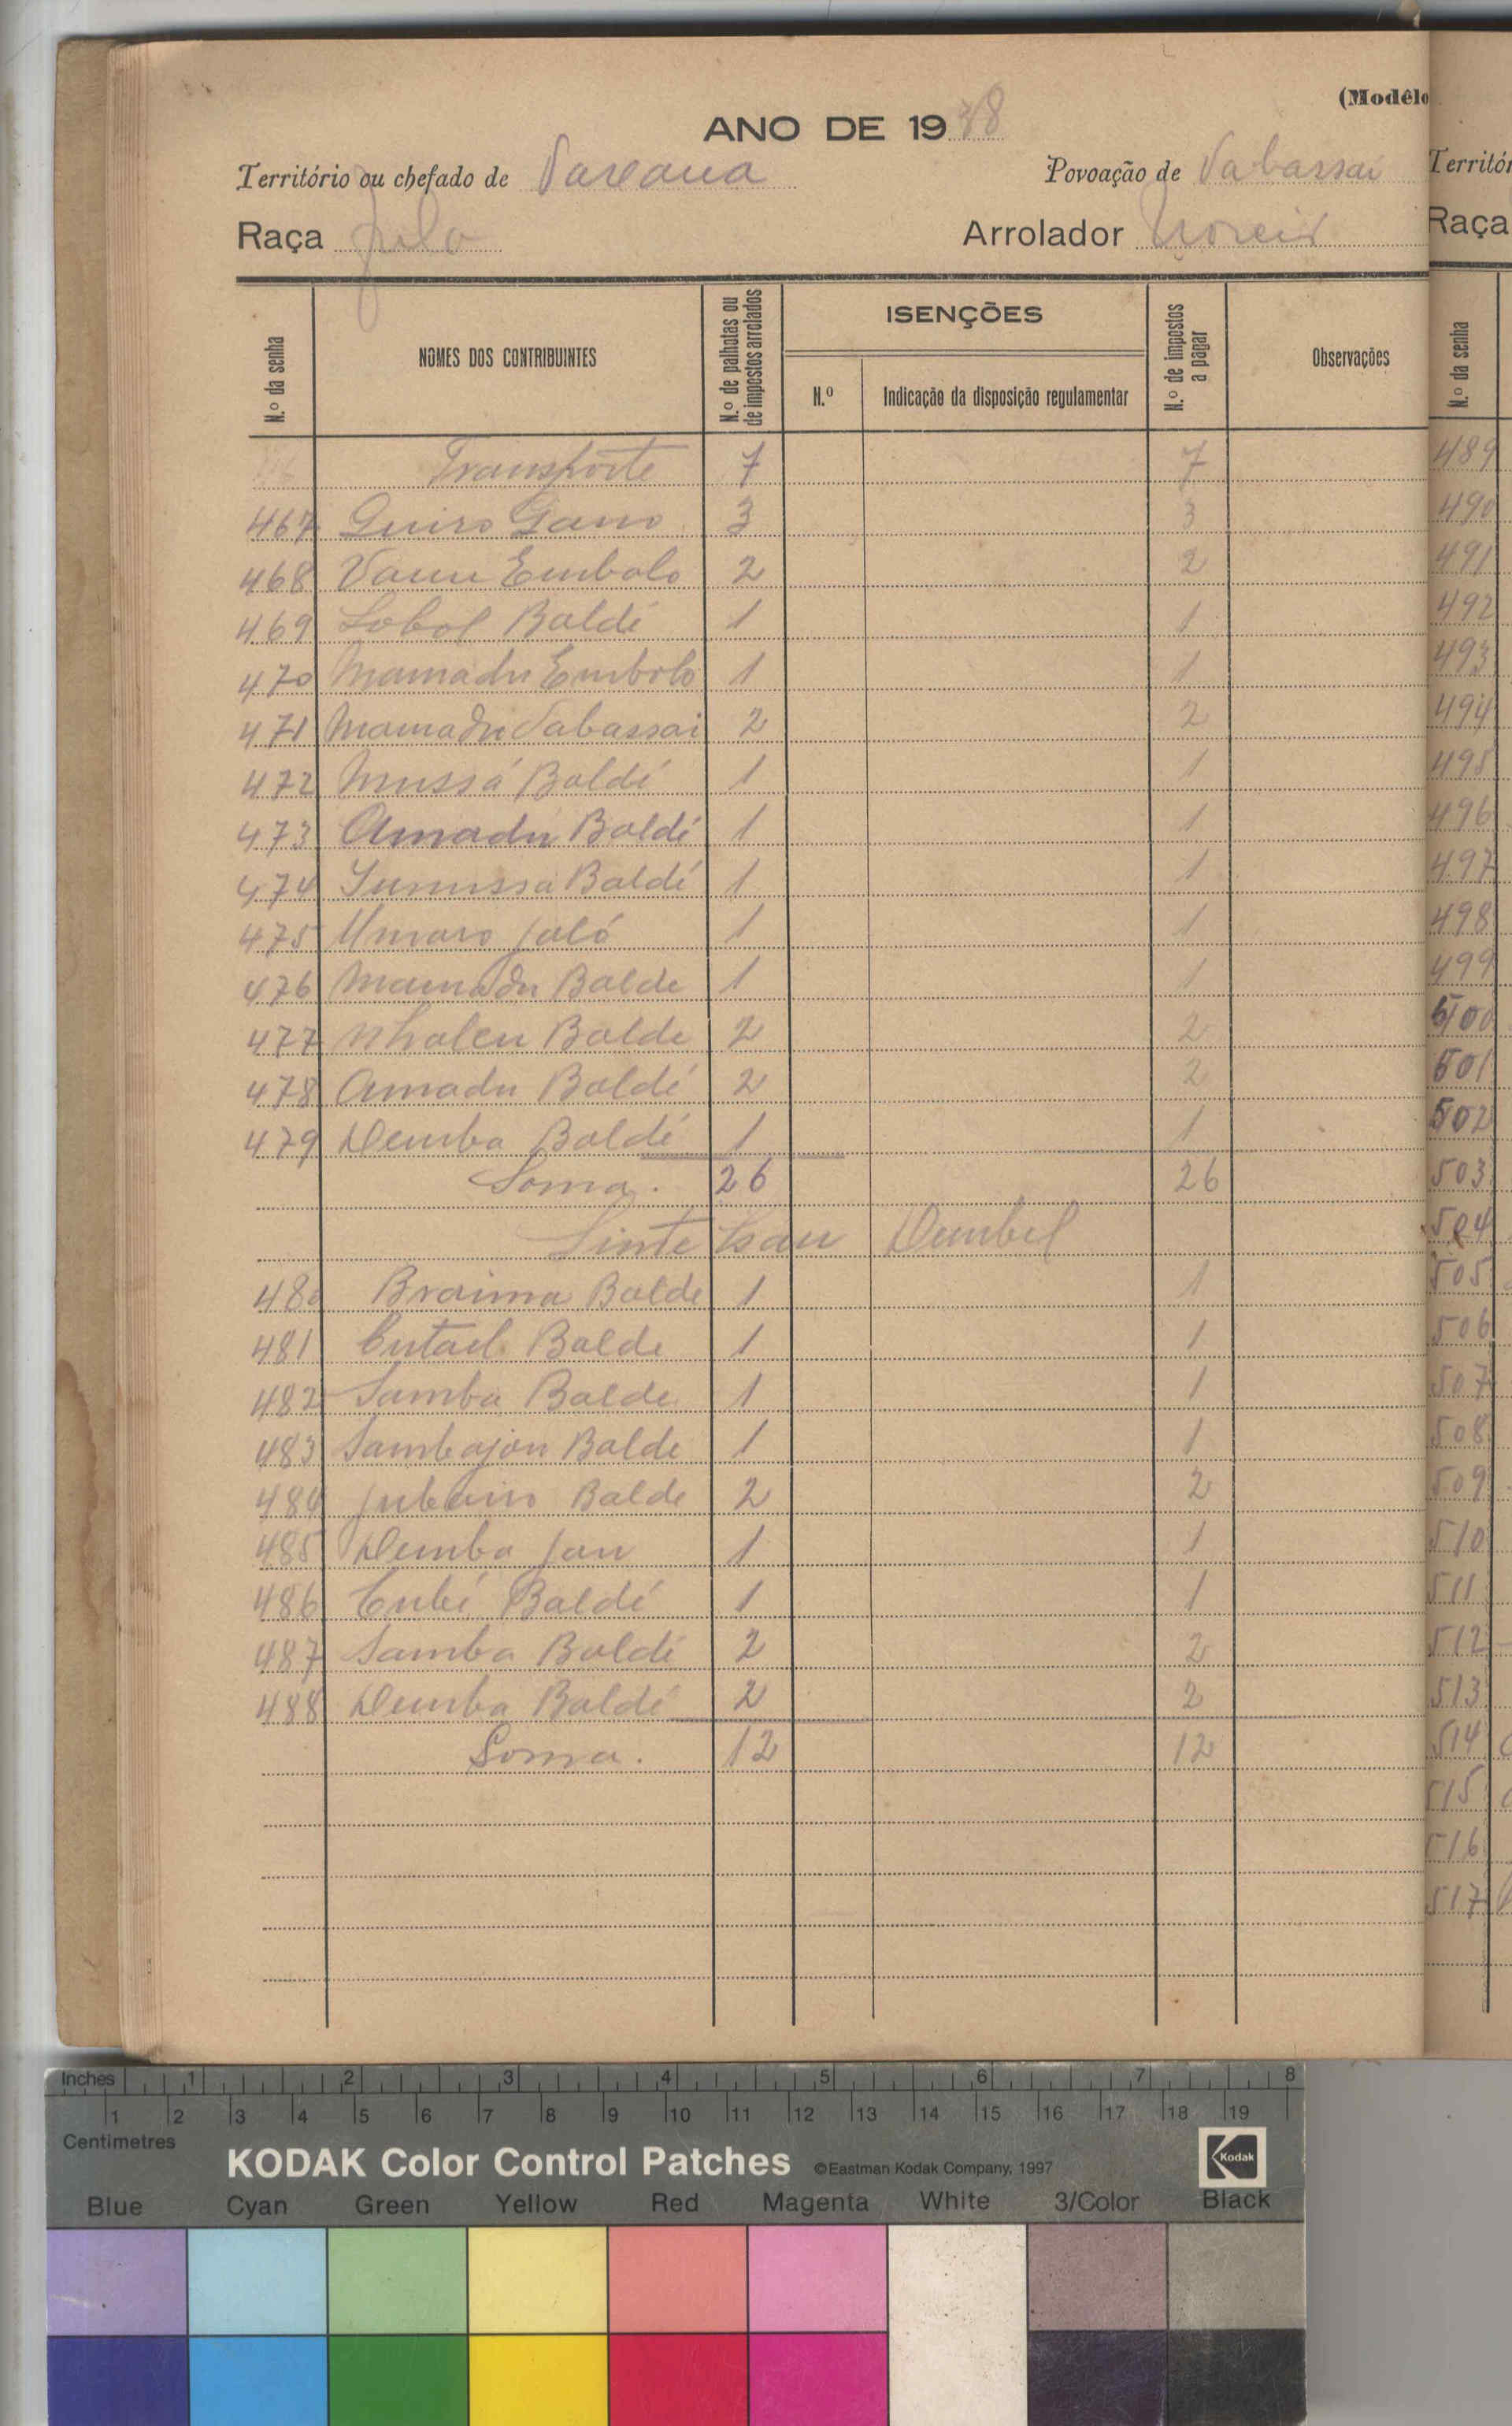 (Modêlo
ANO DE 1938
Território ou chefado de Povoação de Sabassai
Raça Fula Arrolador Moreir
N.º da senha NOMES DOS CONTRIBUINTES N.º de palhotas ou de impostos arrolados ISENÇÕES N.º Indicação da disposição regulamentar N.º de impostos a pagar Observações
Transporte 7 7
467 Quiro Gano 3 3
468 Embalo 2 2
469 Lobol Baldé 1 1
470 Mamadu Embolo 1 1
471 Mamadu Sabassai 2 2
472 Mussá Baldé 1 1
473 Amadu Baldé 1 1
474 Sunussa Baldé 1 1
475 Umaro Jaló 1 1
476 Mamadu Balde 1 1
477 Balde 2 2
478 Amadu Baldé 2 2
479 Demba Baldé 1 1
Soma. 26 26
Sinte Dembel
480 Braima Balde 1 1
481 Balde 1 1
482 Samba Balde 1 1
483 Sambajon Balde 1 1
484 Balde 2 2
485 Demba Jau 1 1
486 Cubé Baldé 1 1
487 Samba Baldé 2 2
488 Demba Baldé 2 2
Soma. 12 12
Territór
Raça
N.º da senha
489
490
491
492
493
494
495
496
497
498
499
500
501
502
503
504
505
506
507
508
509
510
511
512
513
514
515
516
517
Inches 1 2 3 4 5 6 7 8
1 2 3 4 5 6 7 8 9 10 11 12 13 14 15 16 17 18 19
Centimetres
KODAK Color Control Patches ©Eastman Kodak Company, 1997 Kodak
Blue Cyan Green Yellow Red Magenta White 3/Color Black